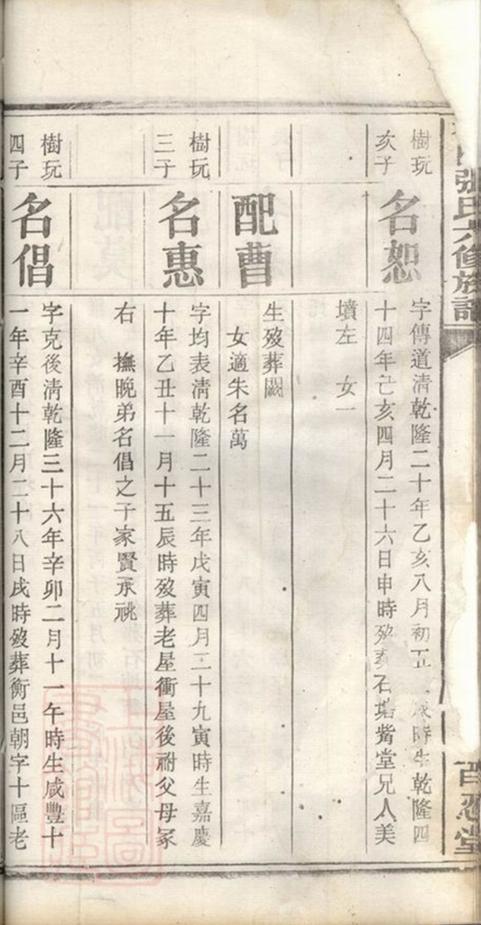 張氏六修族譜
百忍堂
樹玩
亥子
名恕
字傳道清乾隆二十年乙亥八月初五 時生乾隆四
十四年己亥四月二十六日申時歿葬石塘觜堂兄人美
墳左 女一
配曹
生歿葬闕
女適朱名萬
樹玩
三子
名惠
字均表清乾隆二十三年戊寅四月二十九寅時生嘉慶
十年乙丑十一月十五辰時歿葬老屋衝屋後祔父母冢
右 撫晚弟名倡之子家賢承祧
樹玩
四子
名倡
字克後清乾隆三十六年辛卯二月十一午時生咸豐十
一年辛酉十二月二十八日戌時歿葬衡邑朝字十區老